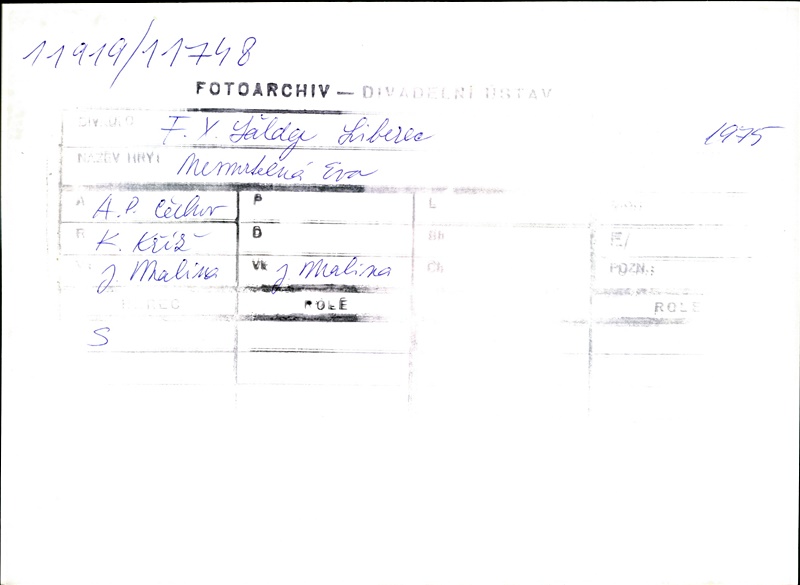 11919/11748
FOTOARCHIV — DIVADELNÍ ÚSTAV
DIVADLO F. X. Šalda Liberec 1975
NÁZEV HRY:
A A. P. Čechov P L
R K. Kříž D Ch E/
J Malina Vk J Malina Ch POZN.:
HEREC ROLE ROLE
S